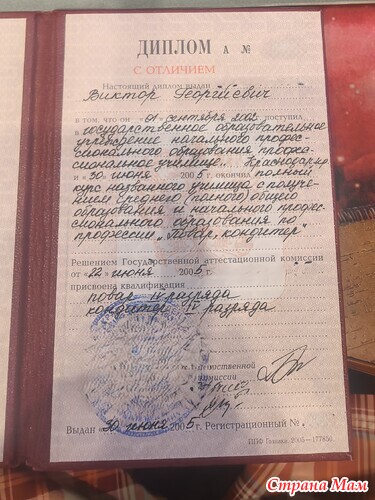 ДИПЛОМ А №
С ОТЛИЧИЕМ
Настоящий диплом выдан
Виктор Георгиевич
в том, что он „01" сентября 2002 поступил
в государственное образовательное
учреждение начального профес-
сионального образования профес-
сиональное училище... Краснодар
и „30 июня 2005 г. окончил полный
курс названного училища с получе-
нием среднего (полного) общего
образования и начального профес-
сионального образования по
профессии „Повар, кондитер"
Решением Государственной аттестационной комиссии
от „22 июня 2005 г.
присвоена квалификация
повар IV разряда
кондитер IV разряда
комиссии
Выдан „30 июня 2005 г. Регистрационный №
ППФ Гознака, 2005—177850.
Страна Мам